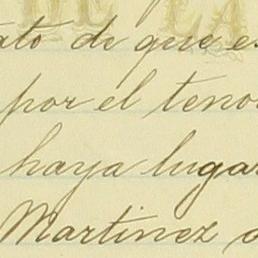 DE LA
ato de que es
por el tenor
haya lugar
Martinez a